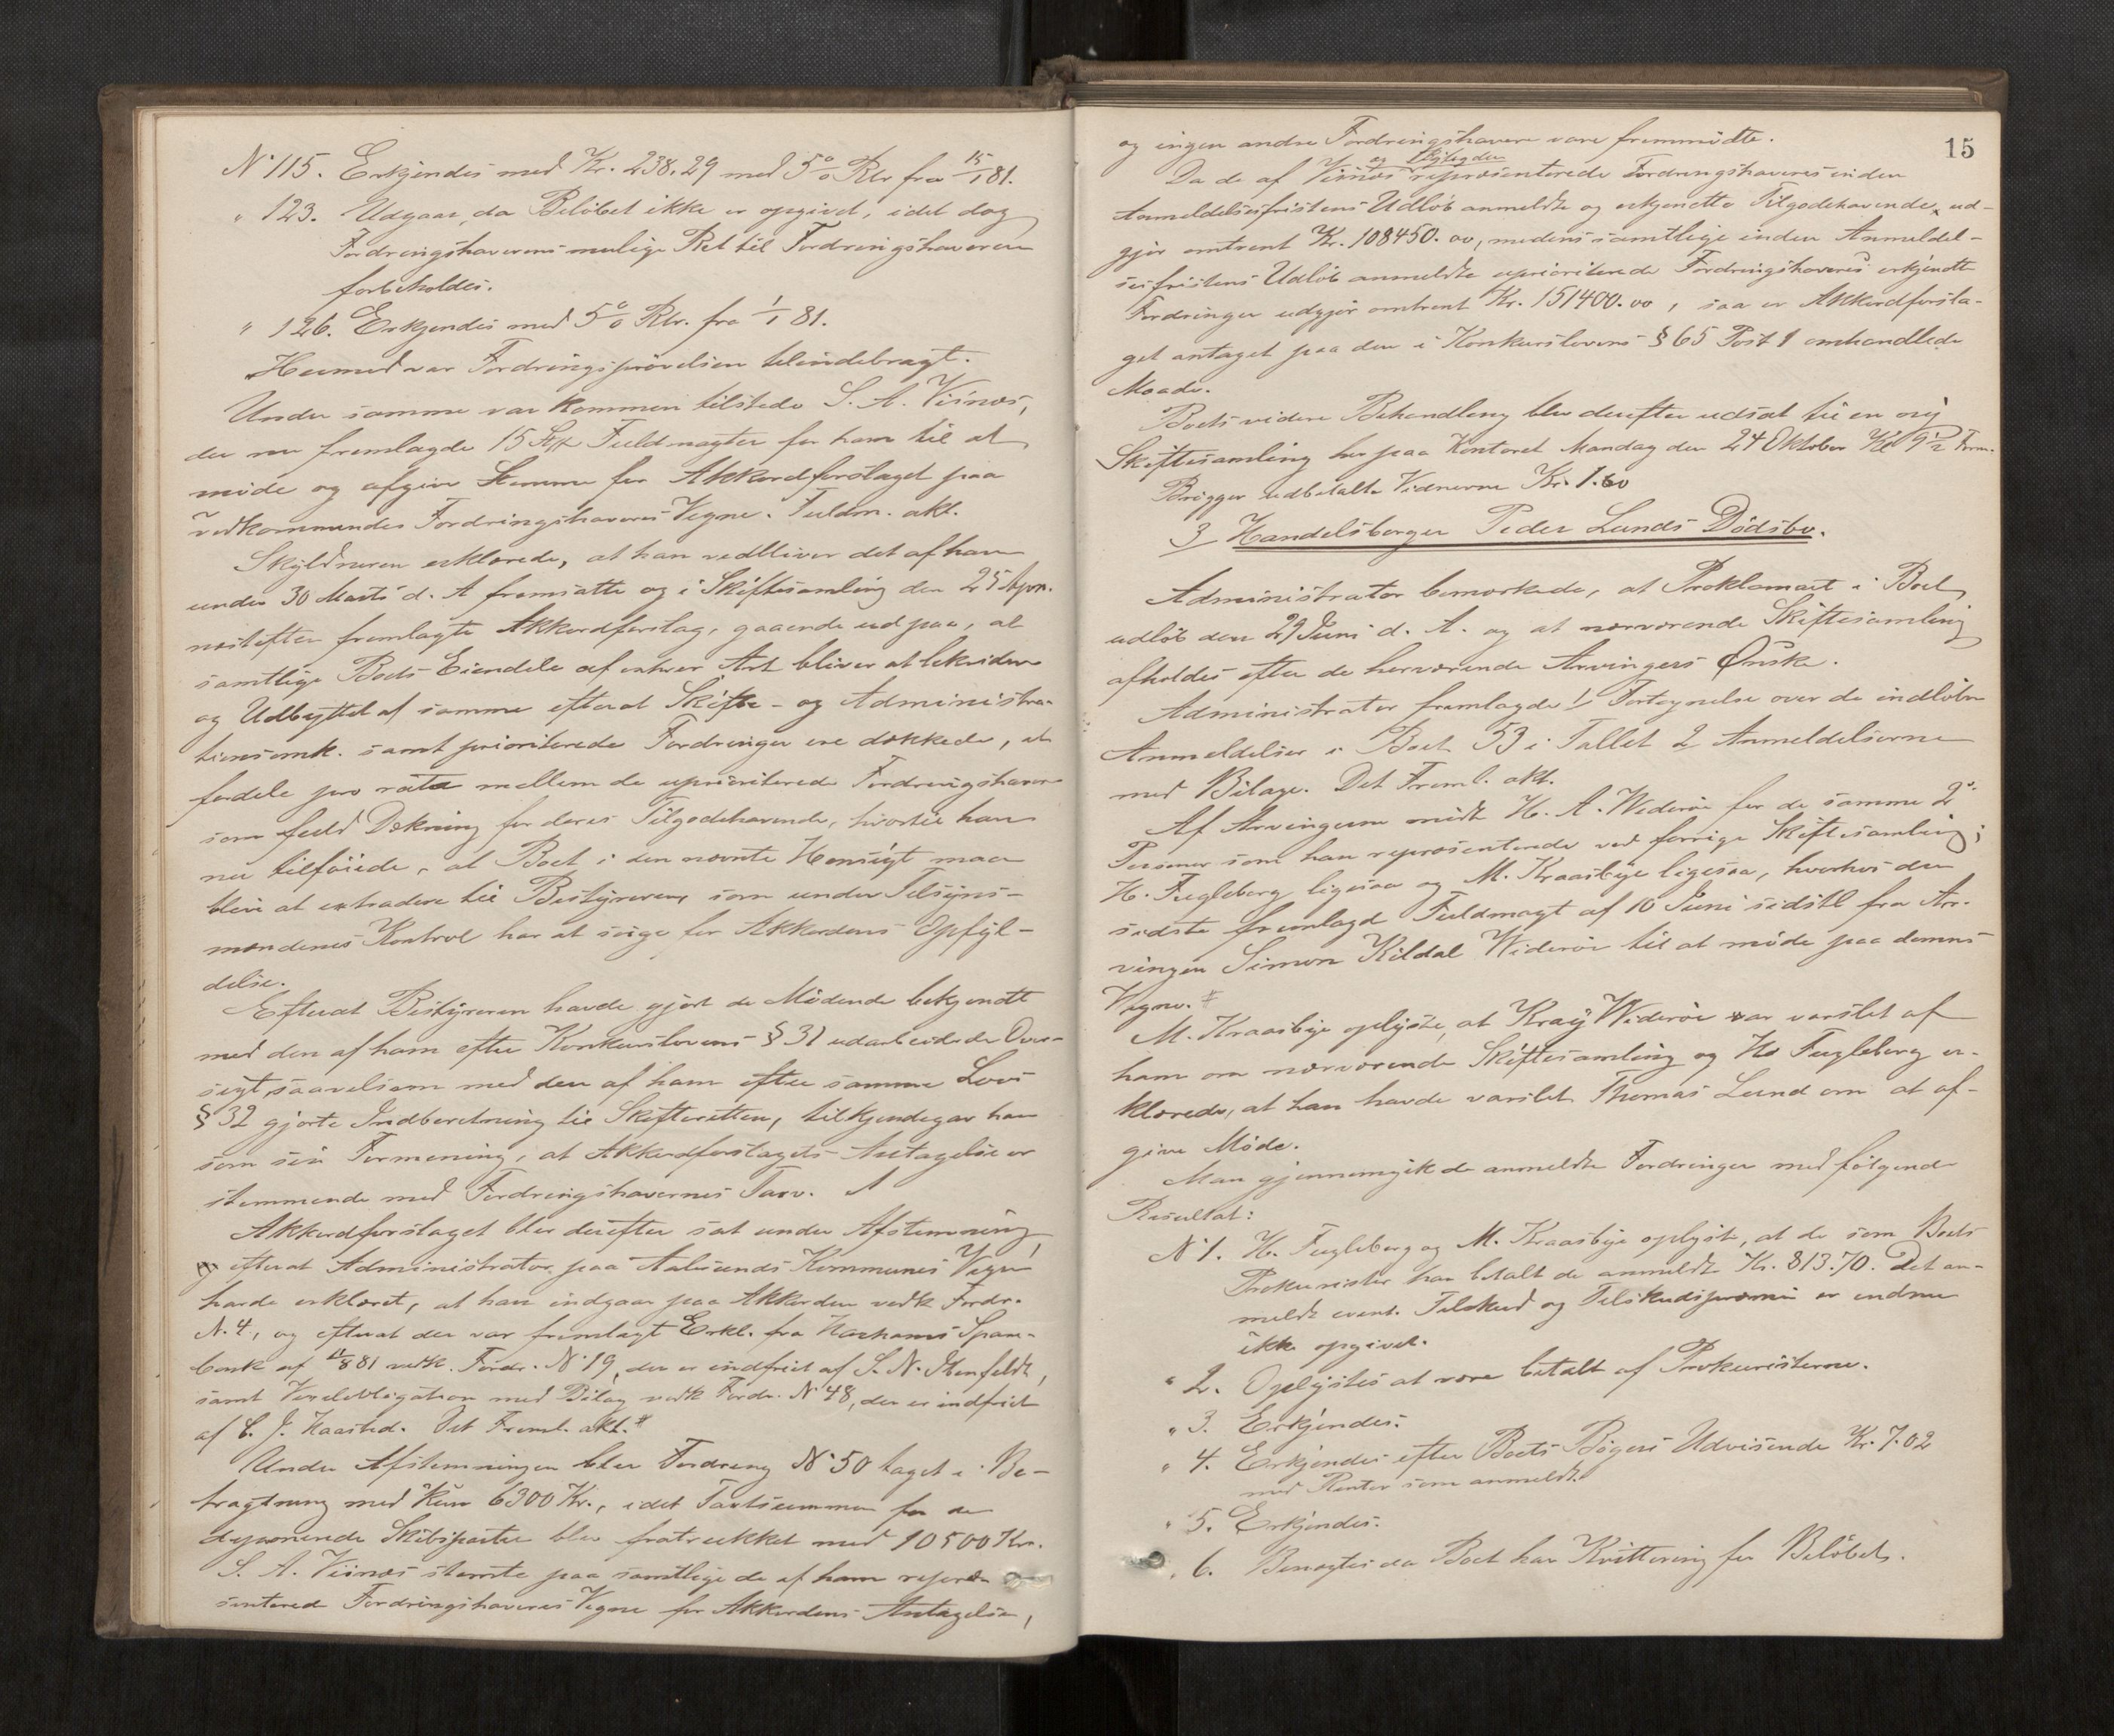 N° 115. Erkjendes med Kr. 238.29 med 5 % Rtr fra 15/1 81.
" 123. Udgaar, da Beløbet ikke er opgivet, idet dog
Fordringshaverens mulige Ret til Fordringshaveren
forbeholdes.
" 126. Erkjendes med 5 % Rtr. fra 1/1 81.
Hermed var Fordringsprøvelsen tilendebragt.
Under samme var kommen tilstede S. A. Viisnæs,
der nu fremlagde 15 Stk Fuldmagter for ham til at
møde og afgive Stemme for Akkordforslaget paa
vedkommendes Fordringshaveres Vegne. Fuldm. akt.
Skyldneren erklærede, at han vedbliver det af ham
under 30 Marts d. A fremsatte og i Skiftesamling den 25 Apr.
næstefter fremlagte Akkordforslag, gaaende ud paa, at
samtlige Boets Eiendele af enhver Art bliver at likvidere
og Udbyttet af samme efterat Skifte- og Administra-
tionsomk. samt prioriterede Fordringer ere dækkede, at
fordele pro rata mellem de uprioriterede Fordringshavere
som fuld Dækning for deres Tilgodehavende, hvortil han
nu tilføiede, at Boet i den nævnte Hensigt maa
blive at extradere til Bestyreren, som under Tilsyns-
mændenes Kontrol har at sørge for Akkordens Opfyl-
delse.
Efterat Bestyreren havde gjort de Mødende bekjendt
med den af ham efter Konkurslovens § 31 udarbeidede Over-
sigt, saavelsom med den af ham efter samme Lovs
§ 32 gjorte Indberetning til Skifteretten, tilkjendegav han
som sin Formening, at Akkordforslagets Antagelse er
stemmende med Fordringshavernes Tarv.
Akkordforslaget blev derefter sat under Afstemning,
og efterat Administrator paa Aalesunds Kommunes Vegne
havde erklæret, at han indgaar paa Akkorden vedk Fordr.
N. 4, og efterat der var fremlagt Erkl. fra Harhams Spare-
bank af 11/8 81 vedk. Fordr. N° 19, der er indfriet af S. N. Stenfeldt,
samt Vexelobligation med Bilag vedk Fordr. N° 48, der er indfriet
af C. J. Kaasted. Det Freml. akt.#
Under Afstemningen blev Fordring N° 50 taget i Be-
tragtning med kun 6300 Kr., idet Taxtsummen for de
deponerede Skibsparter blev fratrukket med 10500 Kr.
S. A. Viisnæs stemte paa samtlige de af ham repræ-
senterede Fordringshaveres Vegne for Akkordens Antagelse,
15
og ingen andre Fordringshavere vare fremmødte.
og Skyldneren
Da de af Viisnæs repræsenterede Fordringshaveres inden
Anmeldelsesfristens Udløb anmeldte og erkjendte Tilgodehavende, ud-
gjør omtrent Kr. 108450.00, medens samtlige inden Anmeldel-
sesfristens Udløb anmeldte uprioriterede Fordringshaveres erkjendte
Fordringer udgjør omtrent Kr. 151400.00, saa er Akkordforsla-
get antaget paa den i Konkurslovens § 65 Post 1 omhandlede
Maade.
Boets videre Behandling blev derefter udsat til en ny
Skiftesamling her paa Kontoret Mandag den 24 Oktober Kl 9½ Form.
Brøgger udbetalte Vidnerne Kr. 1.60
3 Handelsborger Peder Lunds Dødsbo.
Administrator bemærkede, at Proklamaet i Boet
udløb den 29 Juni d. A. og at nærværende Skiftesamling
afholdes efter de herværende Arvingers Ønske.
Administrator fremlagde 1 Fortegnelse over de indløbne
Anmeldelser i Boet 53 i Tallet 2 Anmeldelserne
med Bilage. Det Freml. akt.
Af Arvingerne mødte H. A. Widerøe for de samme 2de
Personer som han repræsenterede ved forrige Skiftesamling;
H. Fugleberg ligesaa og M. Kraasbye ligesaa, hvorhos den
sidste fremlagde Fuldmagt af 10 Juni sidstl fra Ar-
vingen Simon Kildal Widerøe til at møde paa dennes
Vegne. #
M. Kraasbye oplyste, at Kraɡ Widerøe var varslet af
ham om nærværende Skiftesamling og H. Fugleberg er-
klærede, at han havde varslet Thomas Lund om at af-
give Møde.
Man gjennemgik de anmeldte Fordringer med følgende
Resultat:
N° 1. H. Fugleberg og M. Kraasbye oplyste, at de som Boets
Prokurister har betalt de anmeldte Kr. 813.70. Det an-
meldte event. Tilskud og Tilskudspræmie er endnu
ikke opgivet.
" 2. Oplystes at være betalt af Prokuristerne.
" 3. Erkjendes.
" 4. Erkjendes efter Boets Bøgers Udvisende Kr. 7.02
med Renter som anmeldt.
" 5. Erkjendes.
" 6. Benægtes da Boet har Kvittering for Beløbet.